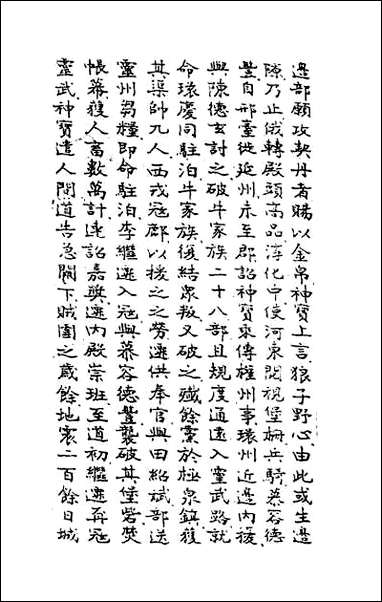 邊部願攻契丹者賜以金帛神寶上言狼子野心由此或生邊
隙乃止俄轉殿頭高品淳化中使河東閱視堡柵兵騎慕容德
豐自邢臺徙延州未至郡詔神寶乘傳權州事環州近邊內擾
與陳德玄討之破牛家族二十八部且規度通遠入靈武路就
命環慶同駐泊牛家族復結衆叛又破之殲餘黨於極泉鎮獲
其渠帥九人西戎寇鄜以援之之勞遷供奉官與田紹斌部送
靈州芻糧即命駐泊李繼遷入寇與慕容德豐襲破其堡砦焚
帳幕獲人畜數萬計連詔嘉奬遷內殿崇班至道初繼遷再寇
靈武神寶遣人間道告急闕下賊圍之歲餘地震二百餘日城